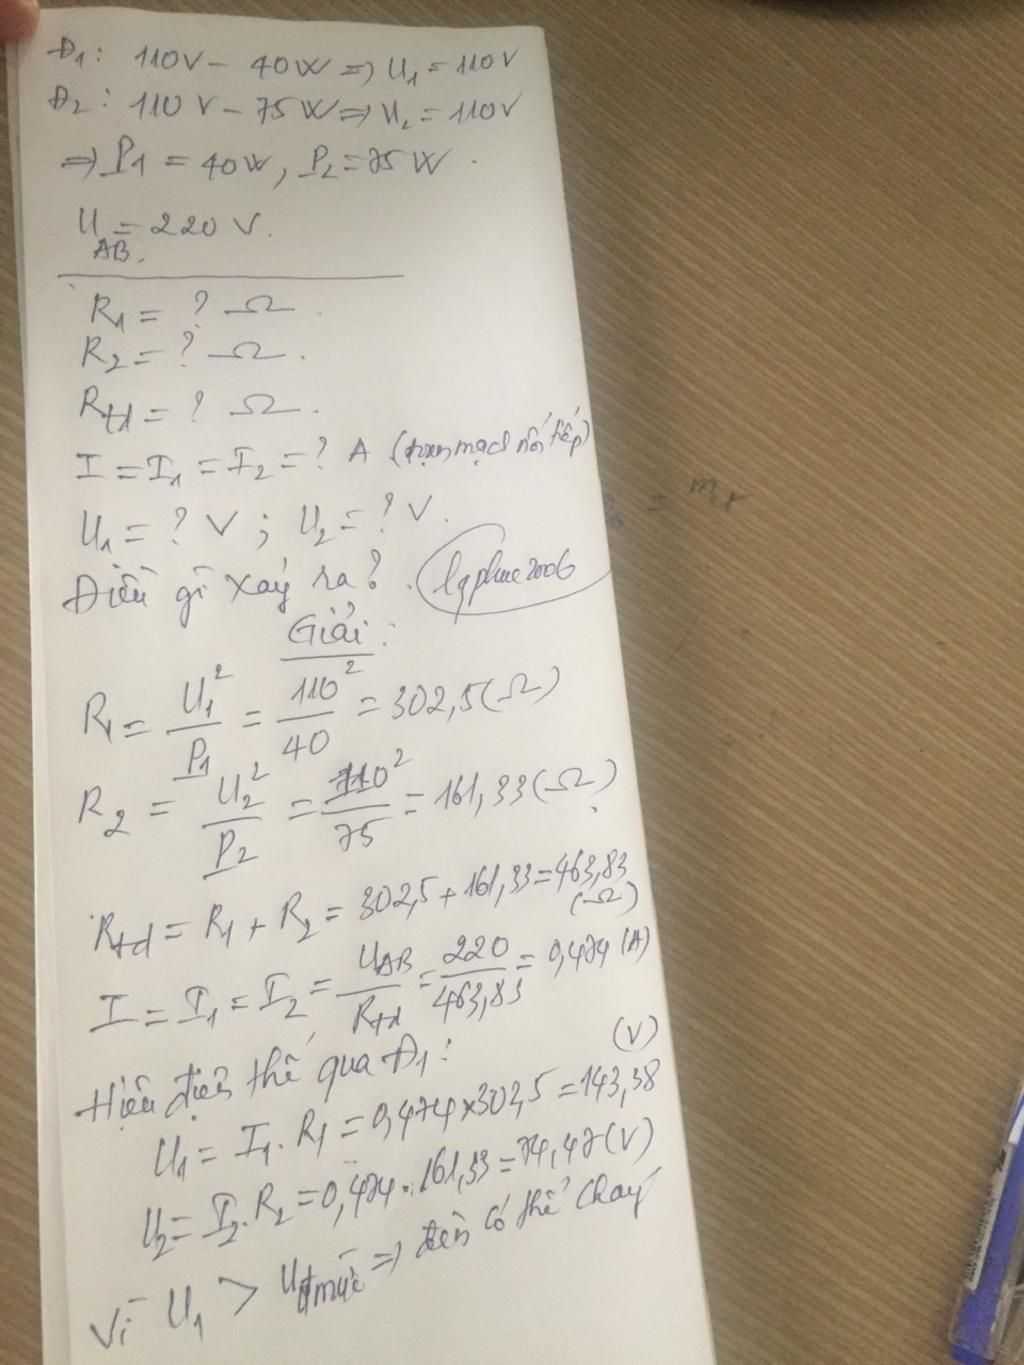 Đ1: 110V - 40W => U1 = 110V
Đ2: 110V - 75W => U2 = 110V
=> P1 = 40W, P2 = 75W.
UAB = 220V.
R1 = ? Ω.
R2 = ? Ω.
Rtđ = ? Ω.
I = I1 = I2 = ? A (đoạn mạch nối tiếp)
U1 = ? V ; U2 = ? V.
Điều gì xảy ra? lqphuc2006
Giải:
R1 = U1²/P1 = 110²/40 = 302,5(Ω)
R2 = U2²/P2 = 110²/75 = 161,33(Ω)
Rtđ = R1 + R2 = 302,5 + 161,33 = 463,83 (Ω)
I = I1 = I2 = UAB/Rtđ = 220/463,83 = 0,474 (A)
Hiệu điện thế qua Đ1:
U1 = I1. R1 = 0,474 x 302,5 = 143,38 (V)
U2 = I2. R2 = 0,474 . 161,33 = 74,47 (V)
Vì U1 > Uđmức => đèn có thể cháy